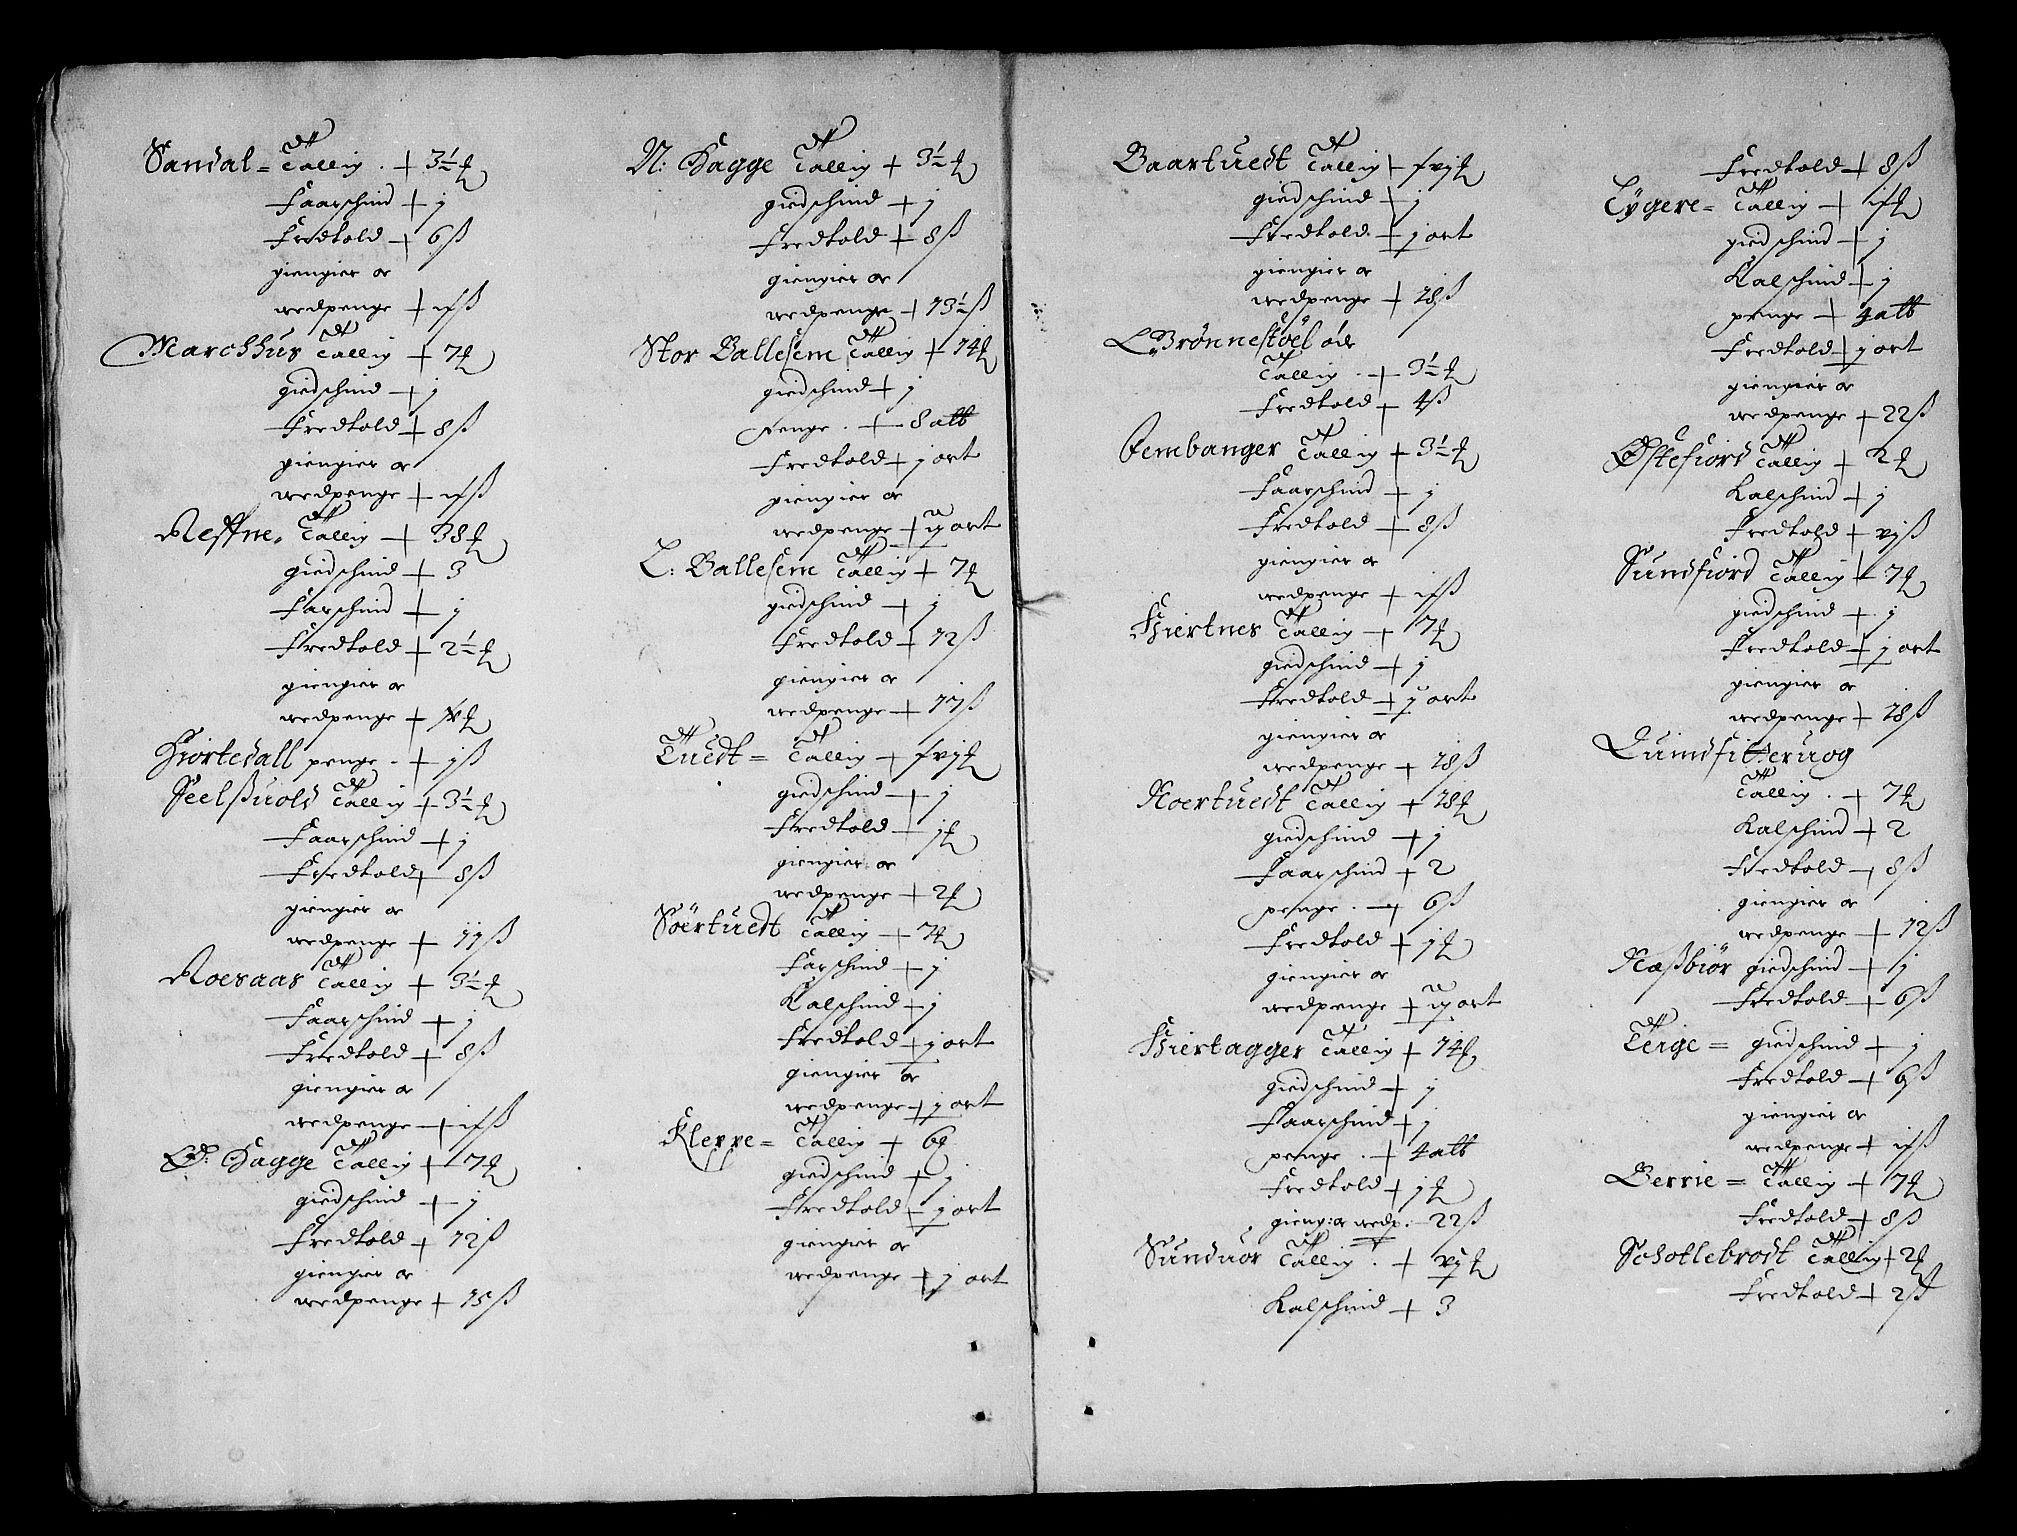 Sandal = Tallig . + 3½ ₰
Faarschind + j
Fredtold + 6 ß
giengier oc
wedpenge + ijß
Marchhus Tallig + 7 ₰
giedschind + j
Fredtold + 8 ß
giengier oc
wedpenge + ijß
Reffne, Tallig + 38 ₰
giedschind + 3
Farschind + j
Fredtold + 2½ ₰
giengier oc
wedpenge +
Hiortedall penge - + jß
Seelßuold Tallig + 3½ ₰
Faarschind + j
Fredtold + 8 ß
giengier oc
wedpenge + 11 ß
Roesaas Tallig + 3½ ₰
Faarschind + j
Fredtold + 8 ß
giengier oc
wedpenge + ijß
Ø: Hagge Tallig + 7 ₰
giedschind + j
Fredtold + 12 ß
giengier oc
wedpenge + 15 ß
N: Hagge Tallig + 3½ ₰
giedschind + j
Fredtold + 8 ß
giengier oc
wedpenge + 13½ ß
Stor Ballesem Tallig + 14 ₰
giedschind + j
Penge . + 8 alb
Fredtold + j ort
giengier oc
wedpenge + iij ort
L: Ballesem Tallig + 7 ₰
giedschind + j
Fredtold + 12 ß
giengier oc
wedpenge + 17 ß
Tuedt = Tallig + xvj ₰
giedschind + j
Fredtold + j ₰
giengier oc
wedpenge + 2 ₰
Söertuedt Tallig + 7 ₰
Farschind + j
Kalschind + j
Fredtold + j ort
giengier oc
wedpenge + j ort
Kleppe = Tallig + 6 ₰
giedschind + j
Fredtold + j ort
giengier oc
wedpenge + j ort
Baartuedt Tallig + xvj ₰
giedschind + j
Fredtold + j ort
giengier oc
wedpenge + 18 ß
L. Brönnestöel öde
Tallig . + 3½ ₰
Fredtold + 4 ß
Fembanger Tallig + 3½ ₰
Faarschind + j
Fredtold + 8 ß
giengier oc
wedpenge + ijß
Hiertnes Tallig + 7 ₰
giedschind + j
Fredtold + j ort
giengier oc
wedpenge + 18 ß
Noertuedt Tallig + 18 ₰
giedschind + j
Faarschind + 2
penge . + 6 ß
Fredtold + j ₰
giengier oc
wedpenge + iij ort
Hiertagger Tallig + 14 ₰
giedschind + j
Faarschind + j
penge . + 4 alb
Fredtold + j ₰
gieng: oc wedp. - 22 ß
Sunduor Tallig . + xvj ₰
Kalschind + 3
Fredtold + 8 ß
Lygere = Tallig +
giedschind + j
Kalschind + j
penge + 4 alb
Fredtold + j ort
giengier oc
wedpenge + 22 ß
Østefiord Tallig + 2 ₰
Kalschind + j
Fredtold + vjß
Sundfiord Tallig + 7 ₰
giedschind + j
Fredtold + j ort
giengier oc
wedpenge + 18 ß
Tallig . + 7 ₰
Kalschind + 2
Fredtold + 8 ß
giengier oc
wedpenge + 12 ß
Næßbiör giedschind + j
Fredtold + 6 ß
Teige = giedschind + j
Fredtold + 6 ß
giengier oc
wedpenge + ijß
Berrie = Tallig + 7 ₰
Fredtold + 8 ß
Schotlebrodt Tallig + 2 ₰
Fredtold + 2 ß